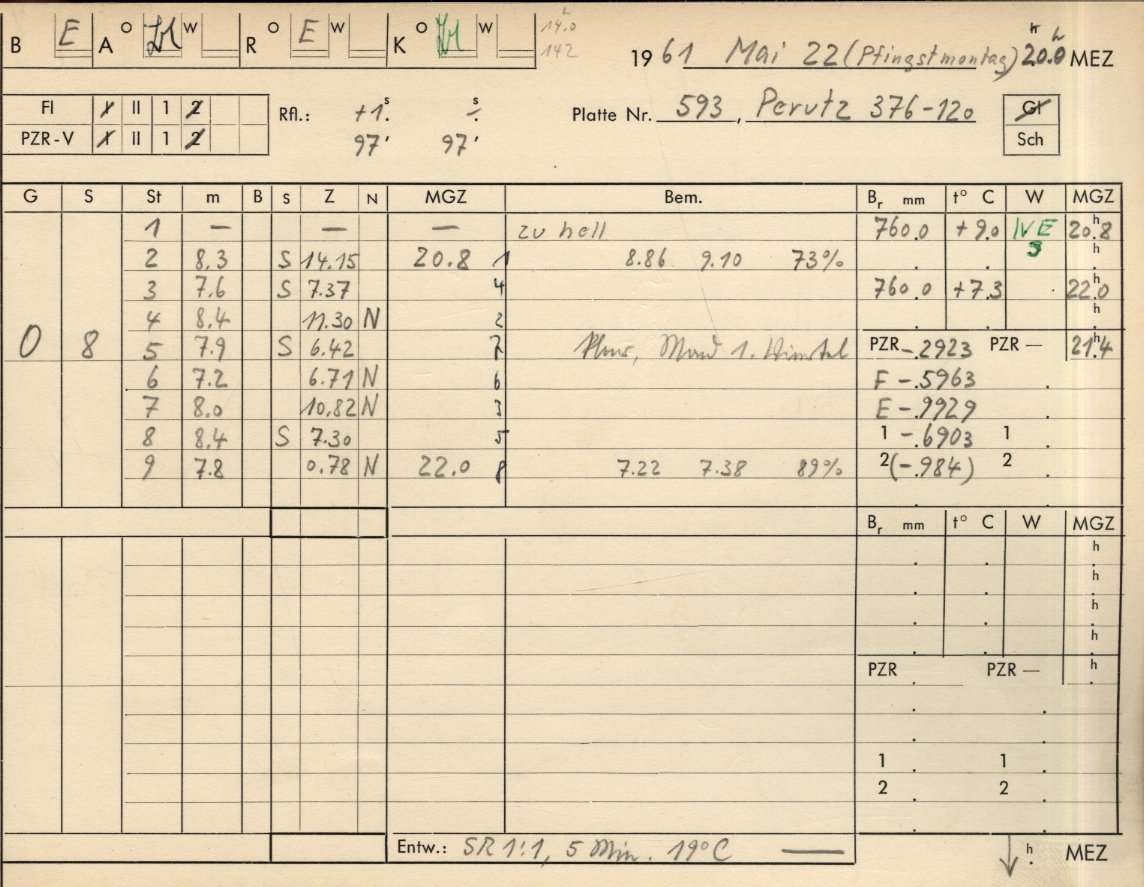 B E A O W R O E W K O W 14.0 h
142
19 61 Mai 22 (Pfingstmontag) 20.0 h MEZ
FI I II 1 2
PZR-V I II 1 2
Rfl.: +1.s ÷.s
97' 97'
Platte Nr. 593, Perutz 376-120
Gl
Sch
G S St m B S Z N MGZ Bem. Br mm t° C W MGZ
1 — — — zu hell 760.0 +9.0 IVE 20.8 h
2 8.3 S 14.15 20.8 1 8.86 9.10 73% 3 h
3 7.6 S 7.37 4 760.0 +7.3 22.0 h
4 8.4 11.30 N 2 h
0 8 5 7.9 S 6.42 7 Mond 1. Viertel PZR -.2923 PZR — 21.4 h
6 7.2 6.71 N 6 F -.5963
7 8.0 10.82 N 3 E -.9929
8 8.4 S 7.30 5 1 -.6903 1
9 7.8 0.78 N 22.0 8 7.22 7.38 89% 2 (-.984) 2
Br mm t° C W MGZ
h
h
h
h
PZR PZR — h
1 1
2 2
Entw.: SR 1:1, 5 Min. 19°C — h MEZ